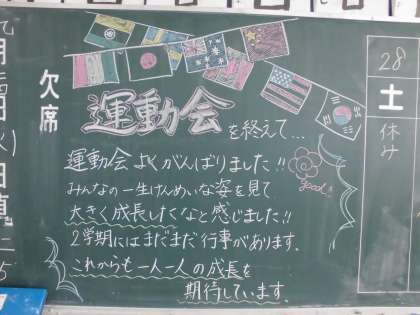 欠席
運動会を終えて…
運動会よくがんばりました!!
みんなの一生けんめいな姿を見て
大きく成長したなと感じました!!
2学期にはまだまだ行事があります.
これからも一人一人の成長を
期待しています.
good!!
28
土
休み